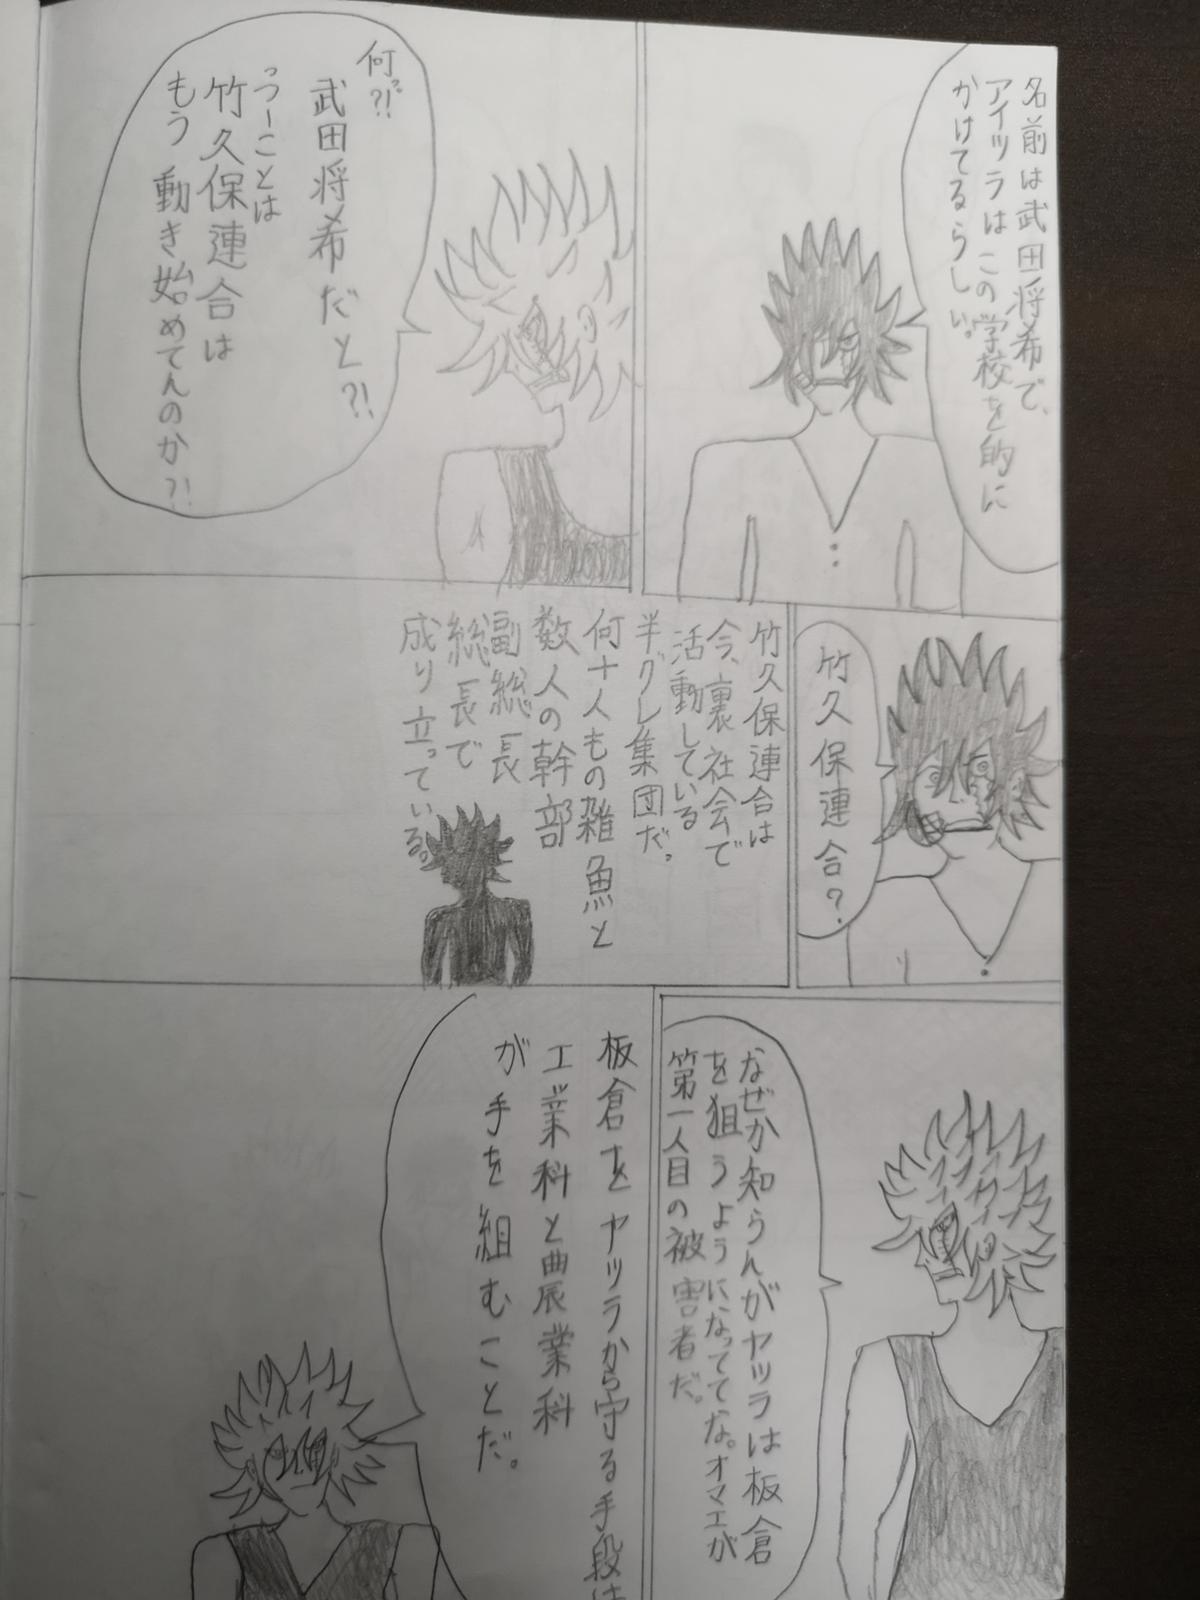 名前は武田将希で、
アイツラはこの学校を的に
かけてるらしい。
何?!
武田将希だと?!
っつーことは
竹久保連合は
もう動き始めてんのか?!
竹久保連合?
竹久保連合は
今、裏社会で
活動している
半グレ集団だ。
何十人もの雑魚と
数人の幹部
副総長
総長で
成り立っている。
なぜか知らんがヤツラは板倉
を狙うようになっててな。オマエが
第一人目の被害者だ。
板倉をヤツラから守る手段は
工業科と農業科
が
手を組むことだ。